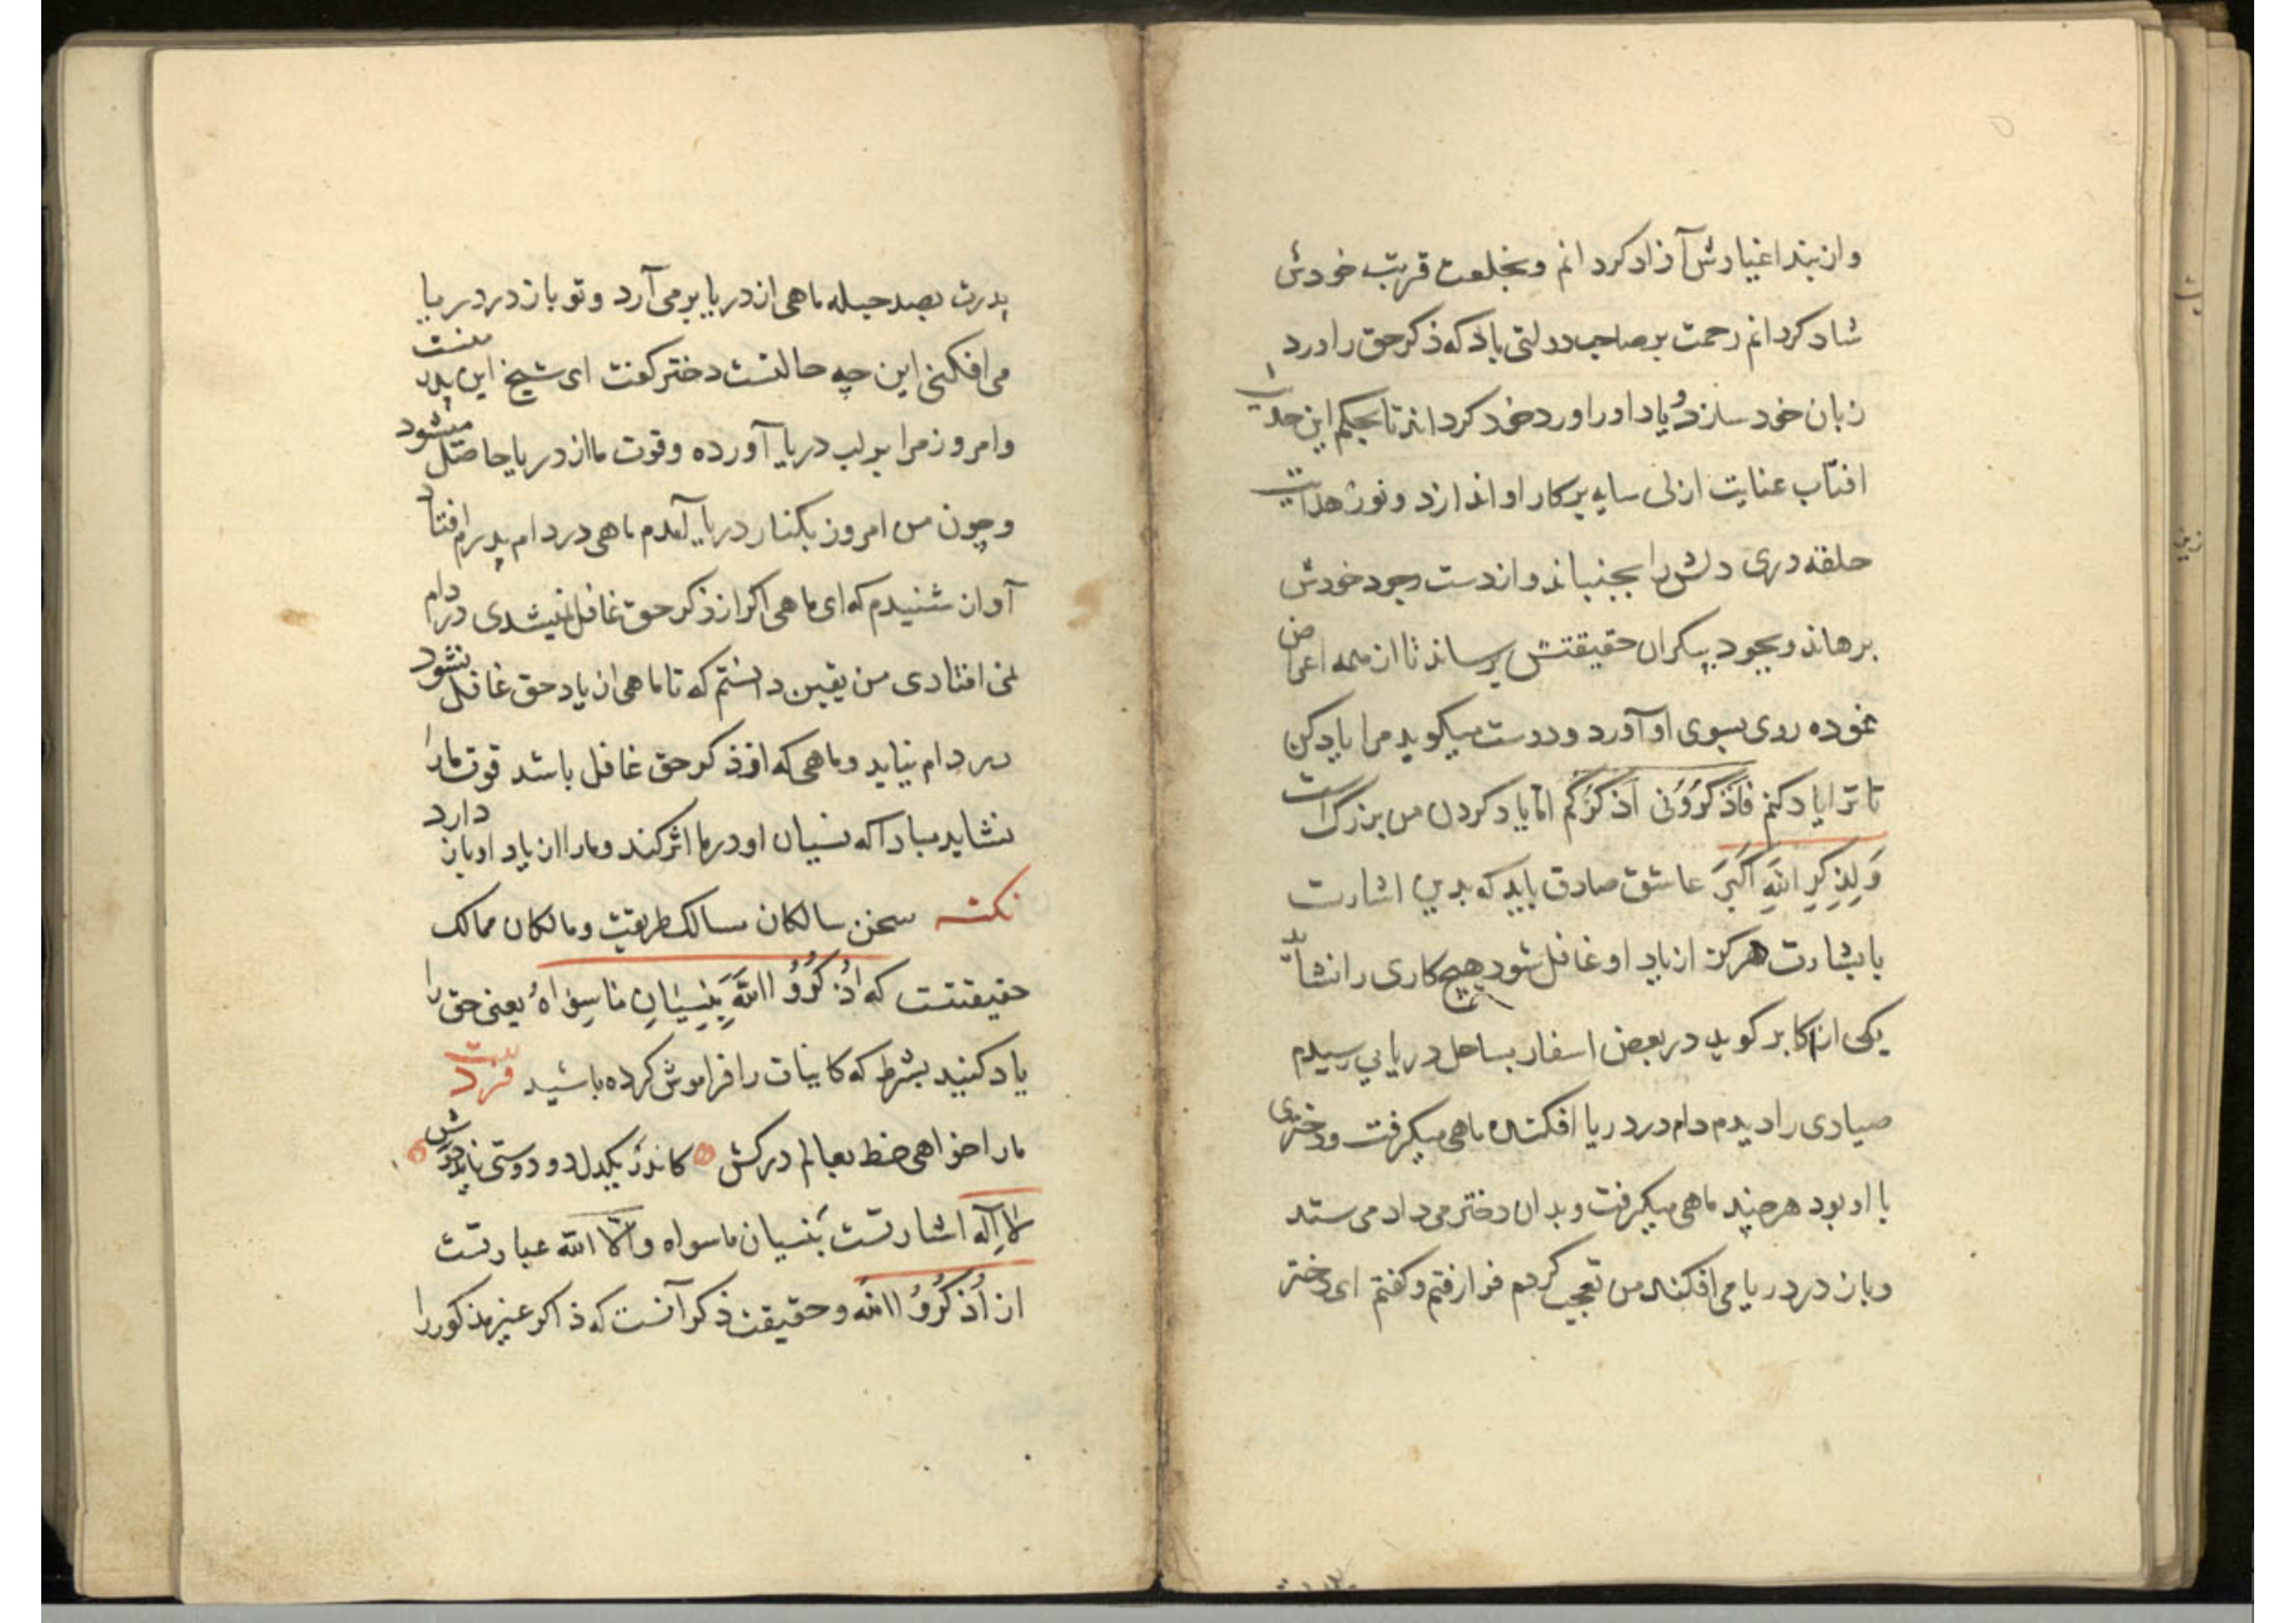 واز بند اغیارش آزاد کردانم وبخلعت قربت خودش
شاد کردانم رحمت بر صاحب دولتی باد که ذکر حق را ورد
زبان خود سازد و یاد او را ورد خود کرداند تا بحکم این حدیث
افتاب عنایت ازلی سایه بر کار او اندازد و نور هدایت
حلقه در دلش را بجنباند واز دست وجود خودش
برهاند وبجود بیکران حقیقتش برساند تا از همه اعراض
نموده روی بسوی او آورد ودوست میکوید مرا یاد کن
تا ترا یاد کنم فَاذْکُرُونی اَذْکُرْکُم امّا یاد کردن من بزرک است
وَلَذِکرِ اللهِ اَکبَر عاشق صادق باید که بدین اشارت
با بشارت هر کز از یاد او غافل نشود هیچ کاری را نشاید
یکی از اکابر کوید در بعض اسفار بساحل دریایی رسیدم
صیادی را دیدم دام در دریا افکنده ماهی میکرفت ودختری
با او بود هر چند ماهی میکرفت وبدان دختر می داد می ستد
وباز در دریا می افکند من تعجب کردم فرا رفتم وکفتم ای دختر
پدرت بصد حیله ماهی از دریا بر می آرد وتو باز در دریا
می افکنی این چه حالتست دختر کفت ای شیخ این پدر منست
وامروز مرا بر لب دریا آورده وقوت ما از دریا حاصل میشود
وچون من امروز بکنار دریا آمدم ماهی در دام پدرم افتاد
آواز شنیدم که ای ماهی اکر از ذکر حق غافل نمیشدی در دام
نمی افتادی من یقین دانستم که تا ماهی از یاد حق غافل نشود
در دام نیاید وماهی که از ذکر حق غافل باشد قوت ما را
نشاید مبادا که نسیان او در ما اثر کند وما را از یاد او باز دارد
نکته سخن سالکان مسالک طریقت ومالکان ممالک
حقیقتست که اُذْکُرُوُا اللهَ بِنِسْیَانِ مَا سِوَاهُ یعنی حق را
یاد کنید بشرط که کاینات را فراموش کرده باشید فرد بیت
مارا خواهی خط بعالم درکش کاندر یکدل دو دوستی ناید خوش
لا اِلَه اشارتست بنسیان ما سواه والّا الله عبارتست
از اُذْکُرُوُا الله وحقیقت ذکر آنست که ذاکر غیر مذکور را